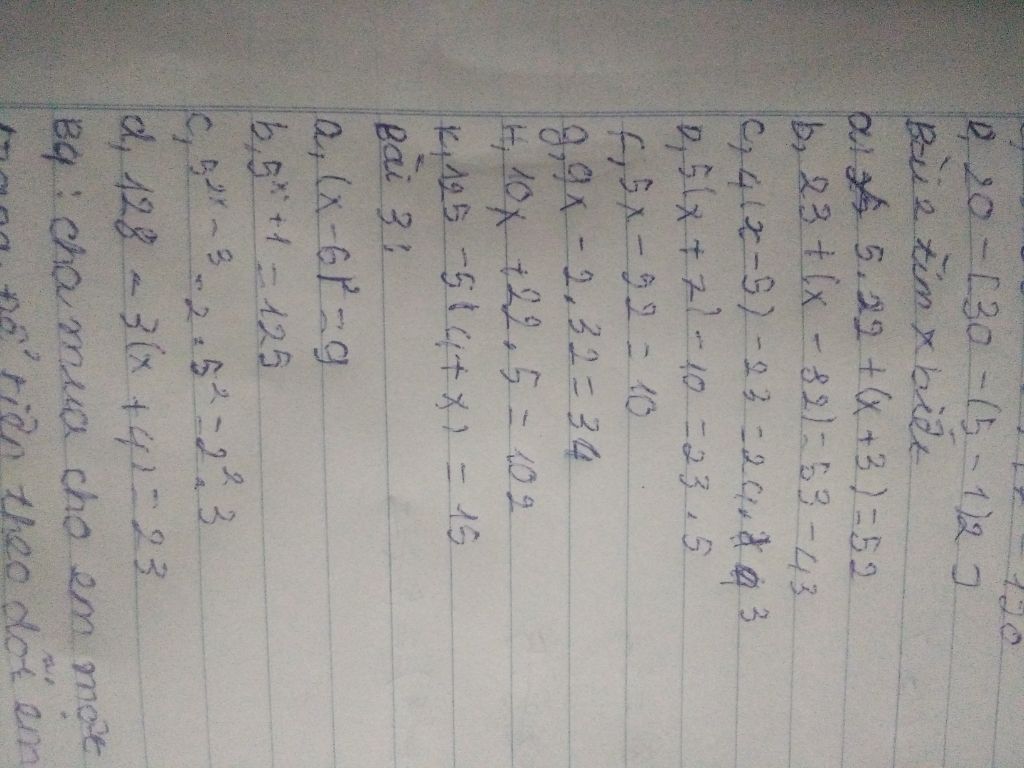 e, 20 - [30 - (5 - 1)2]
Bài 2 tìm x biết
a, 5.22 + (x + 3) = 52
b, 23 + (x - 32) = 53 - 43
c, 4(x - 5) - 23 = 24. 3
D, 5(x + 7) - 10 = 23.5
f, 5x - 52 = 10
g, 9x - 2.32 = 34
H, 10x + 22.5 = 102
K, 125 - 5(4 + x) = 15
Bài 3:
a, (x - 6)² = 9
b, 5ˣ⁺¹ = 125
c, 5²ˣ⁻³ - 2.5² = 2².3
d, 128 - 3(x + 4) = 23
Bài: cha mua cho em một
theo dõi em